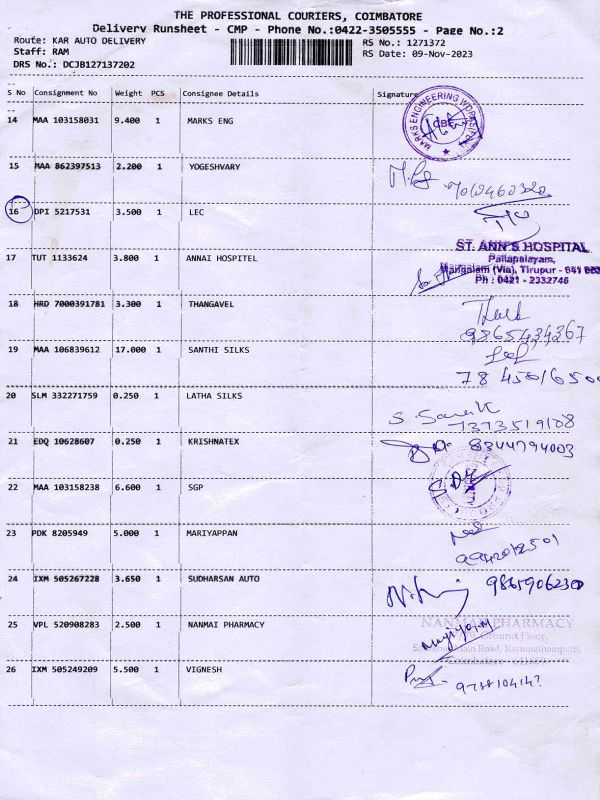 THE PROFESSIONAL COURIERS, COIMBATORE
Delivery Runsheet - CMP - Phone No.:0422-3505555 - Page No.:2
Route: KAR AUTO DELIVERY RS No.: 1271372
Staff: RAM RS Date: 09-Nov-2023
DRS No.: DCJB127137202
S No Consignment No Weight PCS Consignee Details Signature
14 MAA 103158031 9.400 1 MARKS ENG
MARKS ENGINEERING WORKS
15 MAA 862397513 2.200 1 YOGESHVARY
16 DPI 5217531 3.500 1 LEC
17 TUT 1133624 3.800 1 ANNAI HOSPITEL
ST. ANN'S HOSPITAL
Pallapalayam,
Mangalam (Via), Tirupur - 641 663
Ph : 0421 - 2332746
18 HRD 7000391781 3.300 1 THANGAVEL
9865434367
19 MAA 106839612 17.000 1 SANTHI SILKS
20 SLM 332271759 0.250 1 LATHA SILKS
7373519108
21 EDQ 10628607 0.250 1 KRISHNATEX
8344794003
22 MAA 103158238 6.600 1 SGP
23 PDK 8205949 5.000 1 MARIYAPPAN
24 IXM 505267228 3.650 1 SUDHARSAN AUTO
9865906230
25 VPL 520908283 2.500 1 NANMAI PHARMACY
NANMAI PHARMACY
Ground Floor,
Main Road, Karumathampatti,
26 IXM 505249209 5.500 1 VIGNESH